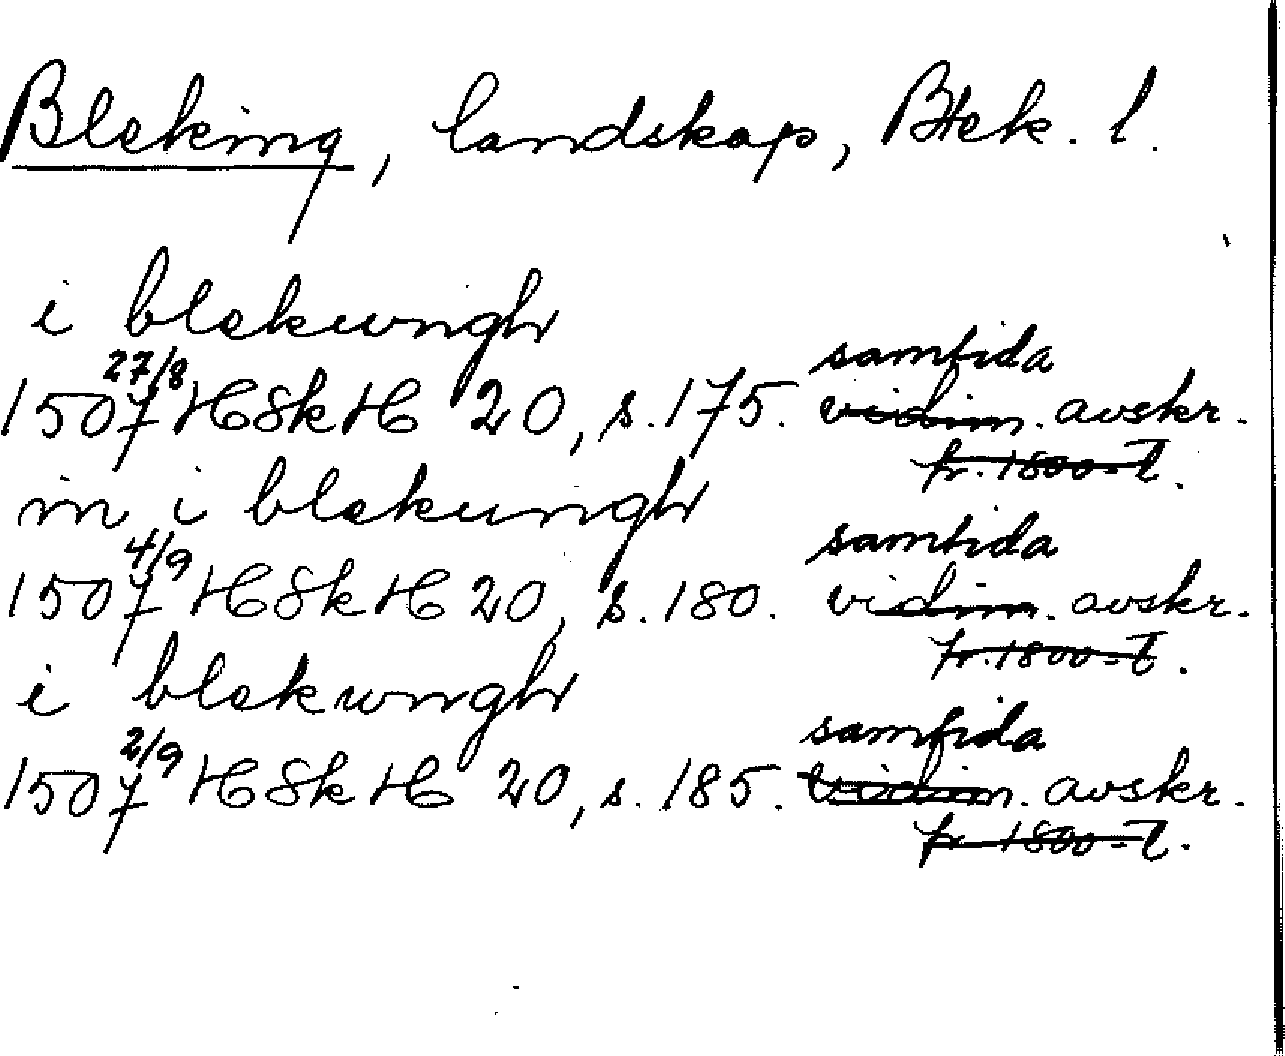 Bleking, landskap, Blek. l.
i blekwngh
1507 27/8 HSkH 20, s. 175. samtida vidim. avskr.
fr. 1800-t.
in i blekungh
1507 4/9 HSkH 20, s. 180. samtida vidim. avskr.
fr. 1800-t.
i blekwngh
1507 2/9 HSkH 20, s. 185. samtida vidim. avskr.
fr. 1800-t.